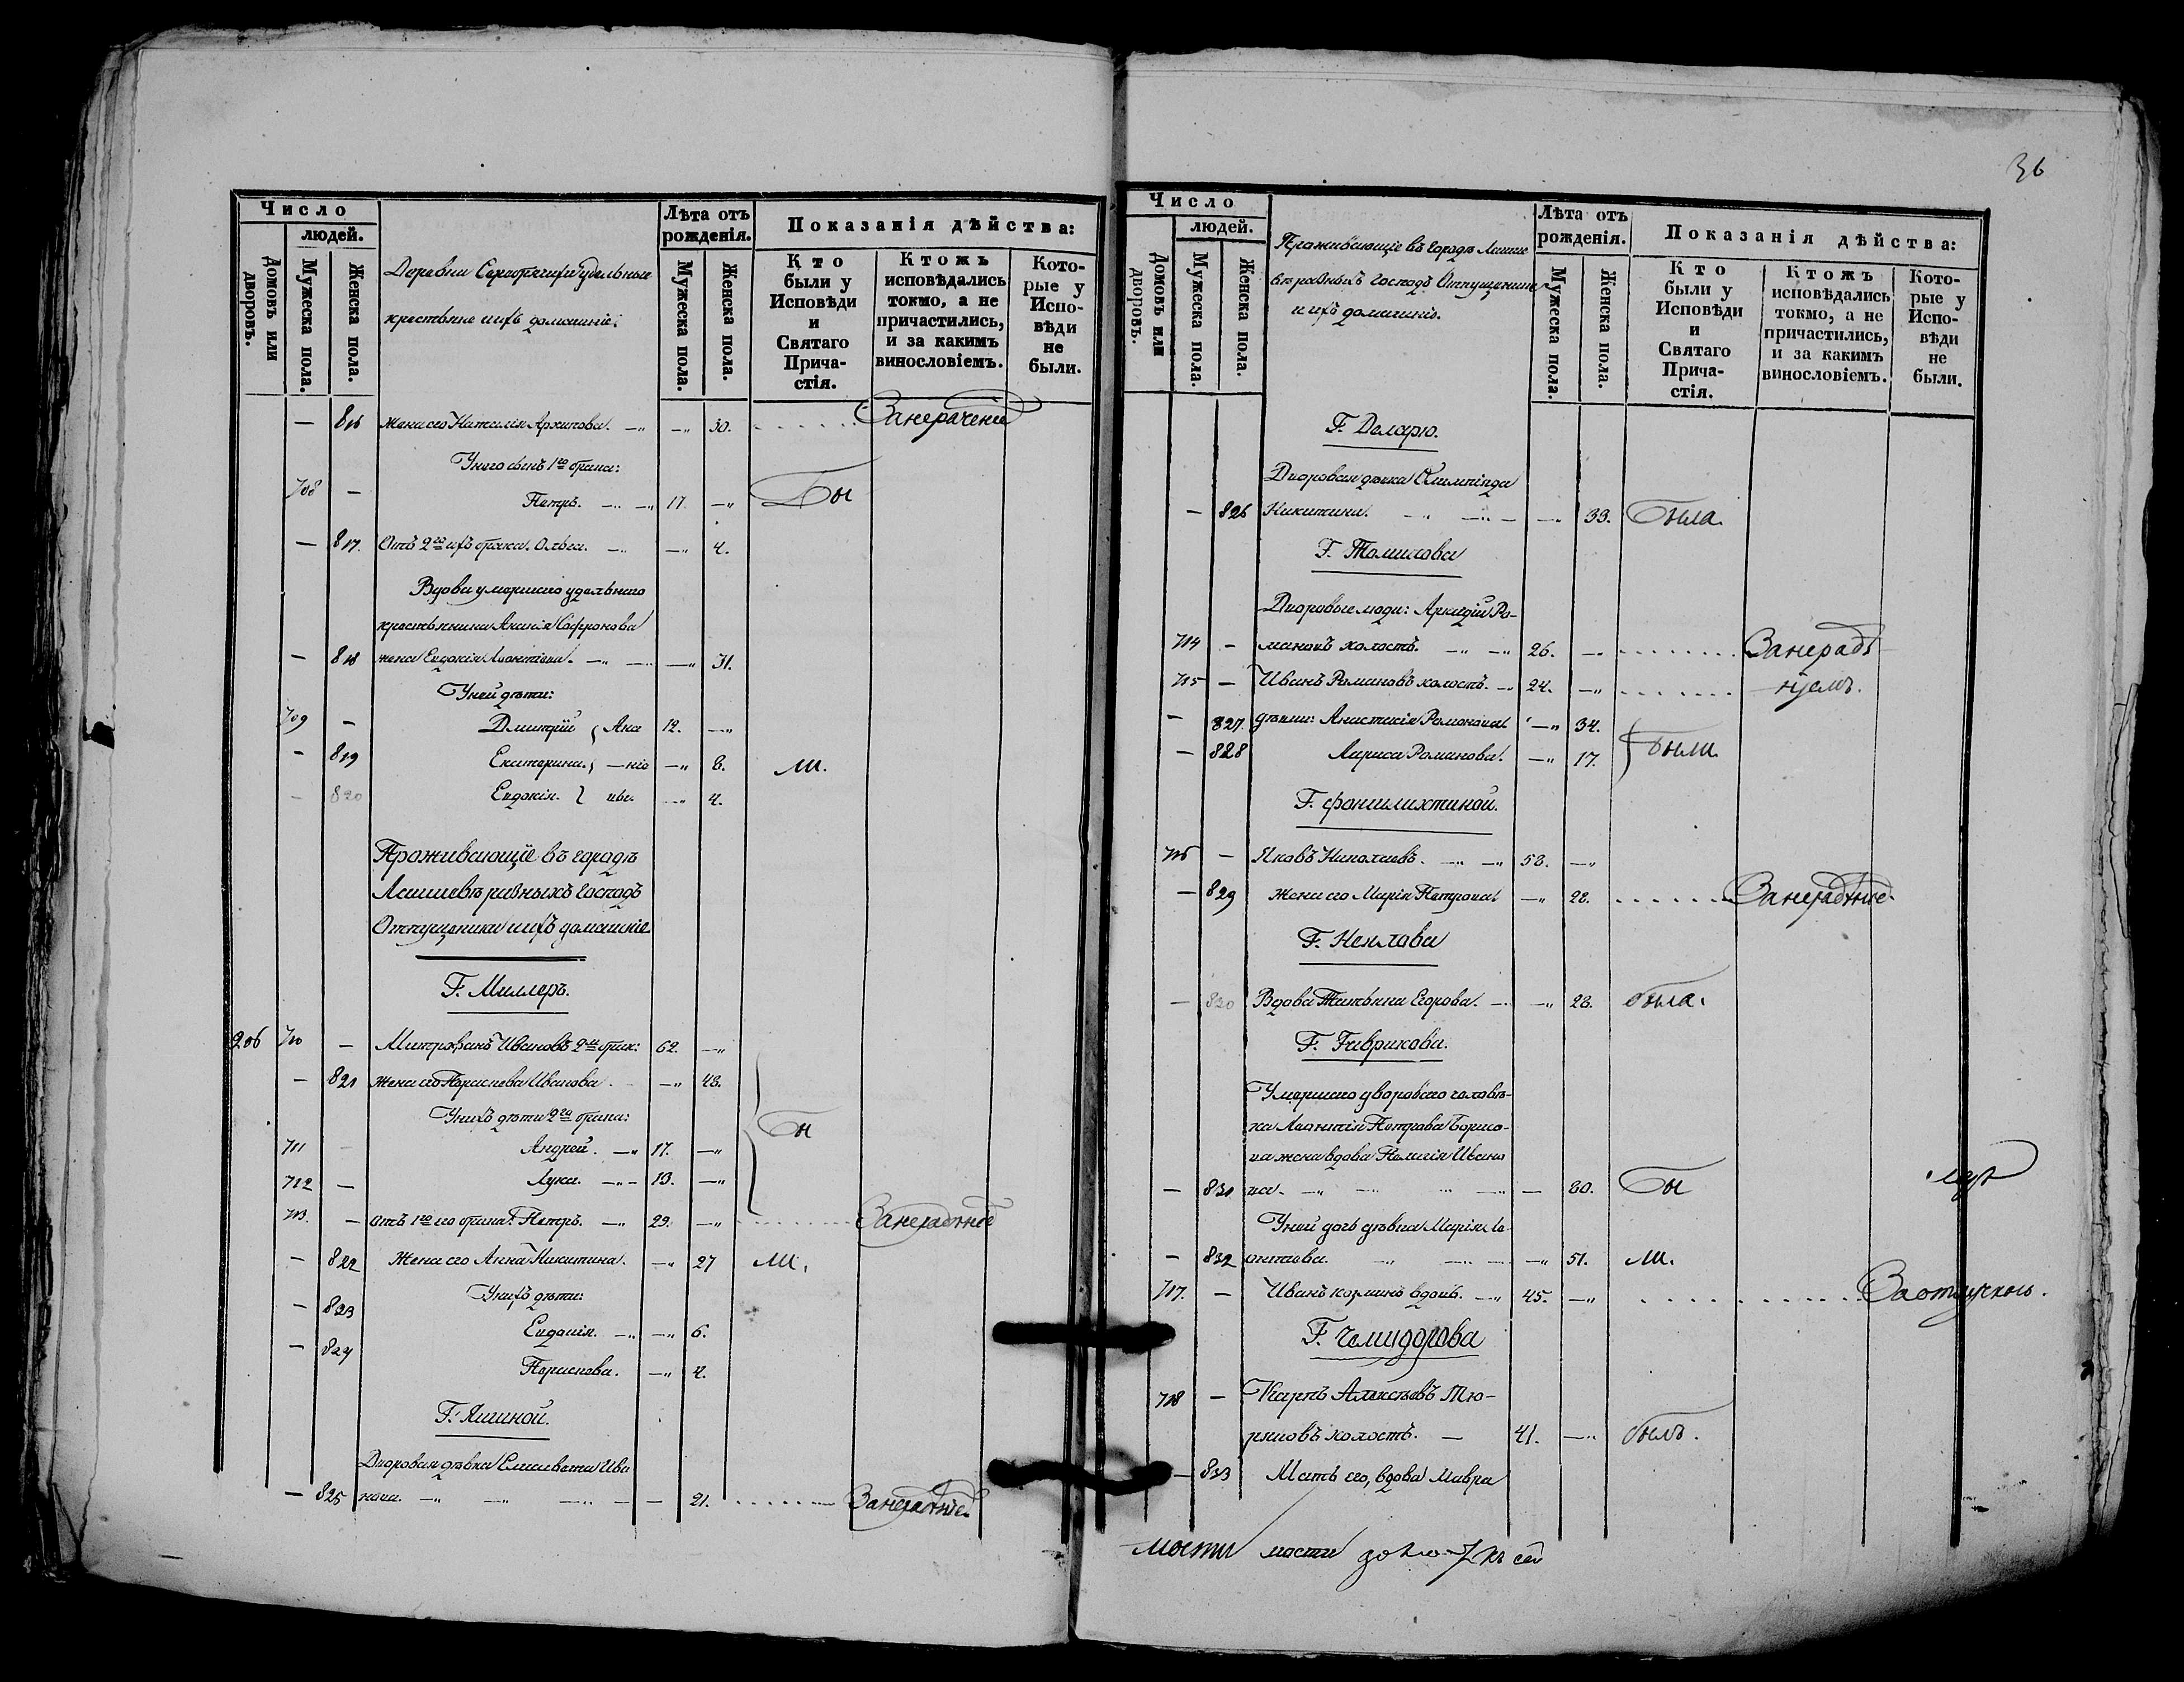 Число
людей.
Домовъ или дворовъ.
Мужеска пола.
Женска пола.
Деревни удѣльные
крестьяне и ихъ домашніе:
Лѣта отъ рожденія.
Мужеска пола.
Женска пола.
Показанія дѣйства:
Кто были у Исповѣди и Святаго Прича-стія.
Ктожъ исповѣдались токмо, а не причастились, и за какимъ винословіемъ.
Кото-рые у Испо-вѣди не были.
— 816 жена его Наталія Архипова. — „ — „ 30. Занераченіе
У него сынъ 1го брака:
708 — Петръ. — „ — „ 17. — „ Бы
— 817. Отъ 2го ихъ брака. Ольга. — „ — „ 4.
Вдова умершаго удѣльнаго
крестьянина Софронова
— 818 жена Евдокія Леонтіева. — „ — „ — „ 31.
У ней дѣти:
709 — Дмитрій 12. — „
— 819 Екатерина. — „ 8. ли.
— 820 Евдокія. — „ 4.
Проживающіе въ городѣ
разныхъ господъ
Отпущеники и ихъ домашніе.
Г. Миллеръ.
206 710 — Митрофанъ Ивановъ 2мъ брак: 62. — „
— 821 жена его Параскева Иванова. — „ 48.
У нихъ дѣти 2го брака:
Бы
711 — Андрей. — „ 17. — „
712 — Лука. — „ — 13. — „
713. — Отъ 1го его брака: Петръ. — „ 29. — „ Занерадѣніе
— 822 Жена его Анна Никитина. — „ 27 ли.
У нихъ дѣти:
— 823 Евдокія. — „ — „ 6.
— 824 Параскева. — „ 4.
Г. Яшиной.
Дворовая дѣвка Елисавета Ива
— 825 нова. — „ — „ — „ — — 21. Занерадѣніе.
36
Число
людей.
Домовъ или дворовъ.
Мужеска пола.
Женска пола.
Проживающіе въ городѣ
разныхъ господъ Отпущеники
и ихъ домашніе.
Лѣта отъ рожденія.
Мужеска пола.
Женска пола.
Показанія дѣйства:
Кто были у Исповѣди и Святаго Прича-стія.
Ктожъ исповѣдались токмо, а не причастились, и за какимъ винословіемъ.
Кото-рые у Испо-вѣди не были.
Г. Деларю.
Дворовая дѣвка Олимпіяда
— 826 Никитина. — „ — „ — — „ 33. Была.
Г. Томилова
Дворовые люди: Аркадій Ро-
714 — мановъ холостъ. — „ — „ 26. — „ Занерадѣ
715 — Иванъ Романовъ холостъ. — „ 24. — „ ніемъ.
— 827. дѣвки: Анастасія Романова. — „ 34.
Были
— 828 Лариса Романова. — „ 17.
716 — Яковъ Николаевъ. — „ — „ 58. — „
— 829 жена его Марія Петрова. — „ 28. Занерадѣніе.
Г. Неклова
— 830 Вдова Татьяна Егорова. — „ — „ 28. была.
Г. Гаврикова.
Умершаго двороваго человѣ-
ка Леонтія Петрова Борисо-
ва жена вдова Пелагія Ивано
— 831 ва. — „ — „ — „ — 80. Бы
У ней дочь дѣвка Марія Ле
— 832 онтьева. — „ — „ — „ 51. ли.
717. — Иванъ вдовъ. — „ 45. — „ За отлучкою.
718 — Карпъ Алексѣевъ Тю-
риковъ холостъ. — 41. — „ былъ.
— 833 Мать его, вдова Мавра